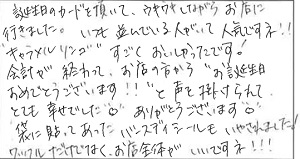 誕生日のカードを頂いて、ウキウキしながらお店に
行きました。いつも並んでいる人がいて人気ですネ!!
"キャラメルリング" すごくおいしかったです!
会計が終わって、お店の方から "お誕生日
おめでとうございます!!" と声を掛けられて
とても幸せでした。ありがとうございます。
袋に貼ってあったバースデイシールもいやされました!
ワッフルだけでなく、お店全体がいいですネ!!!